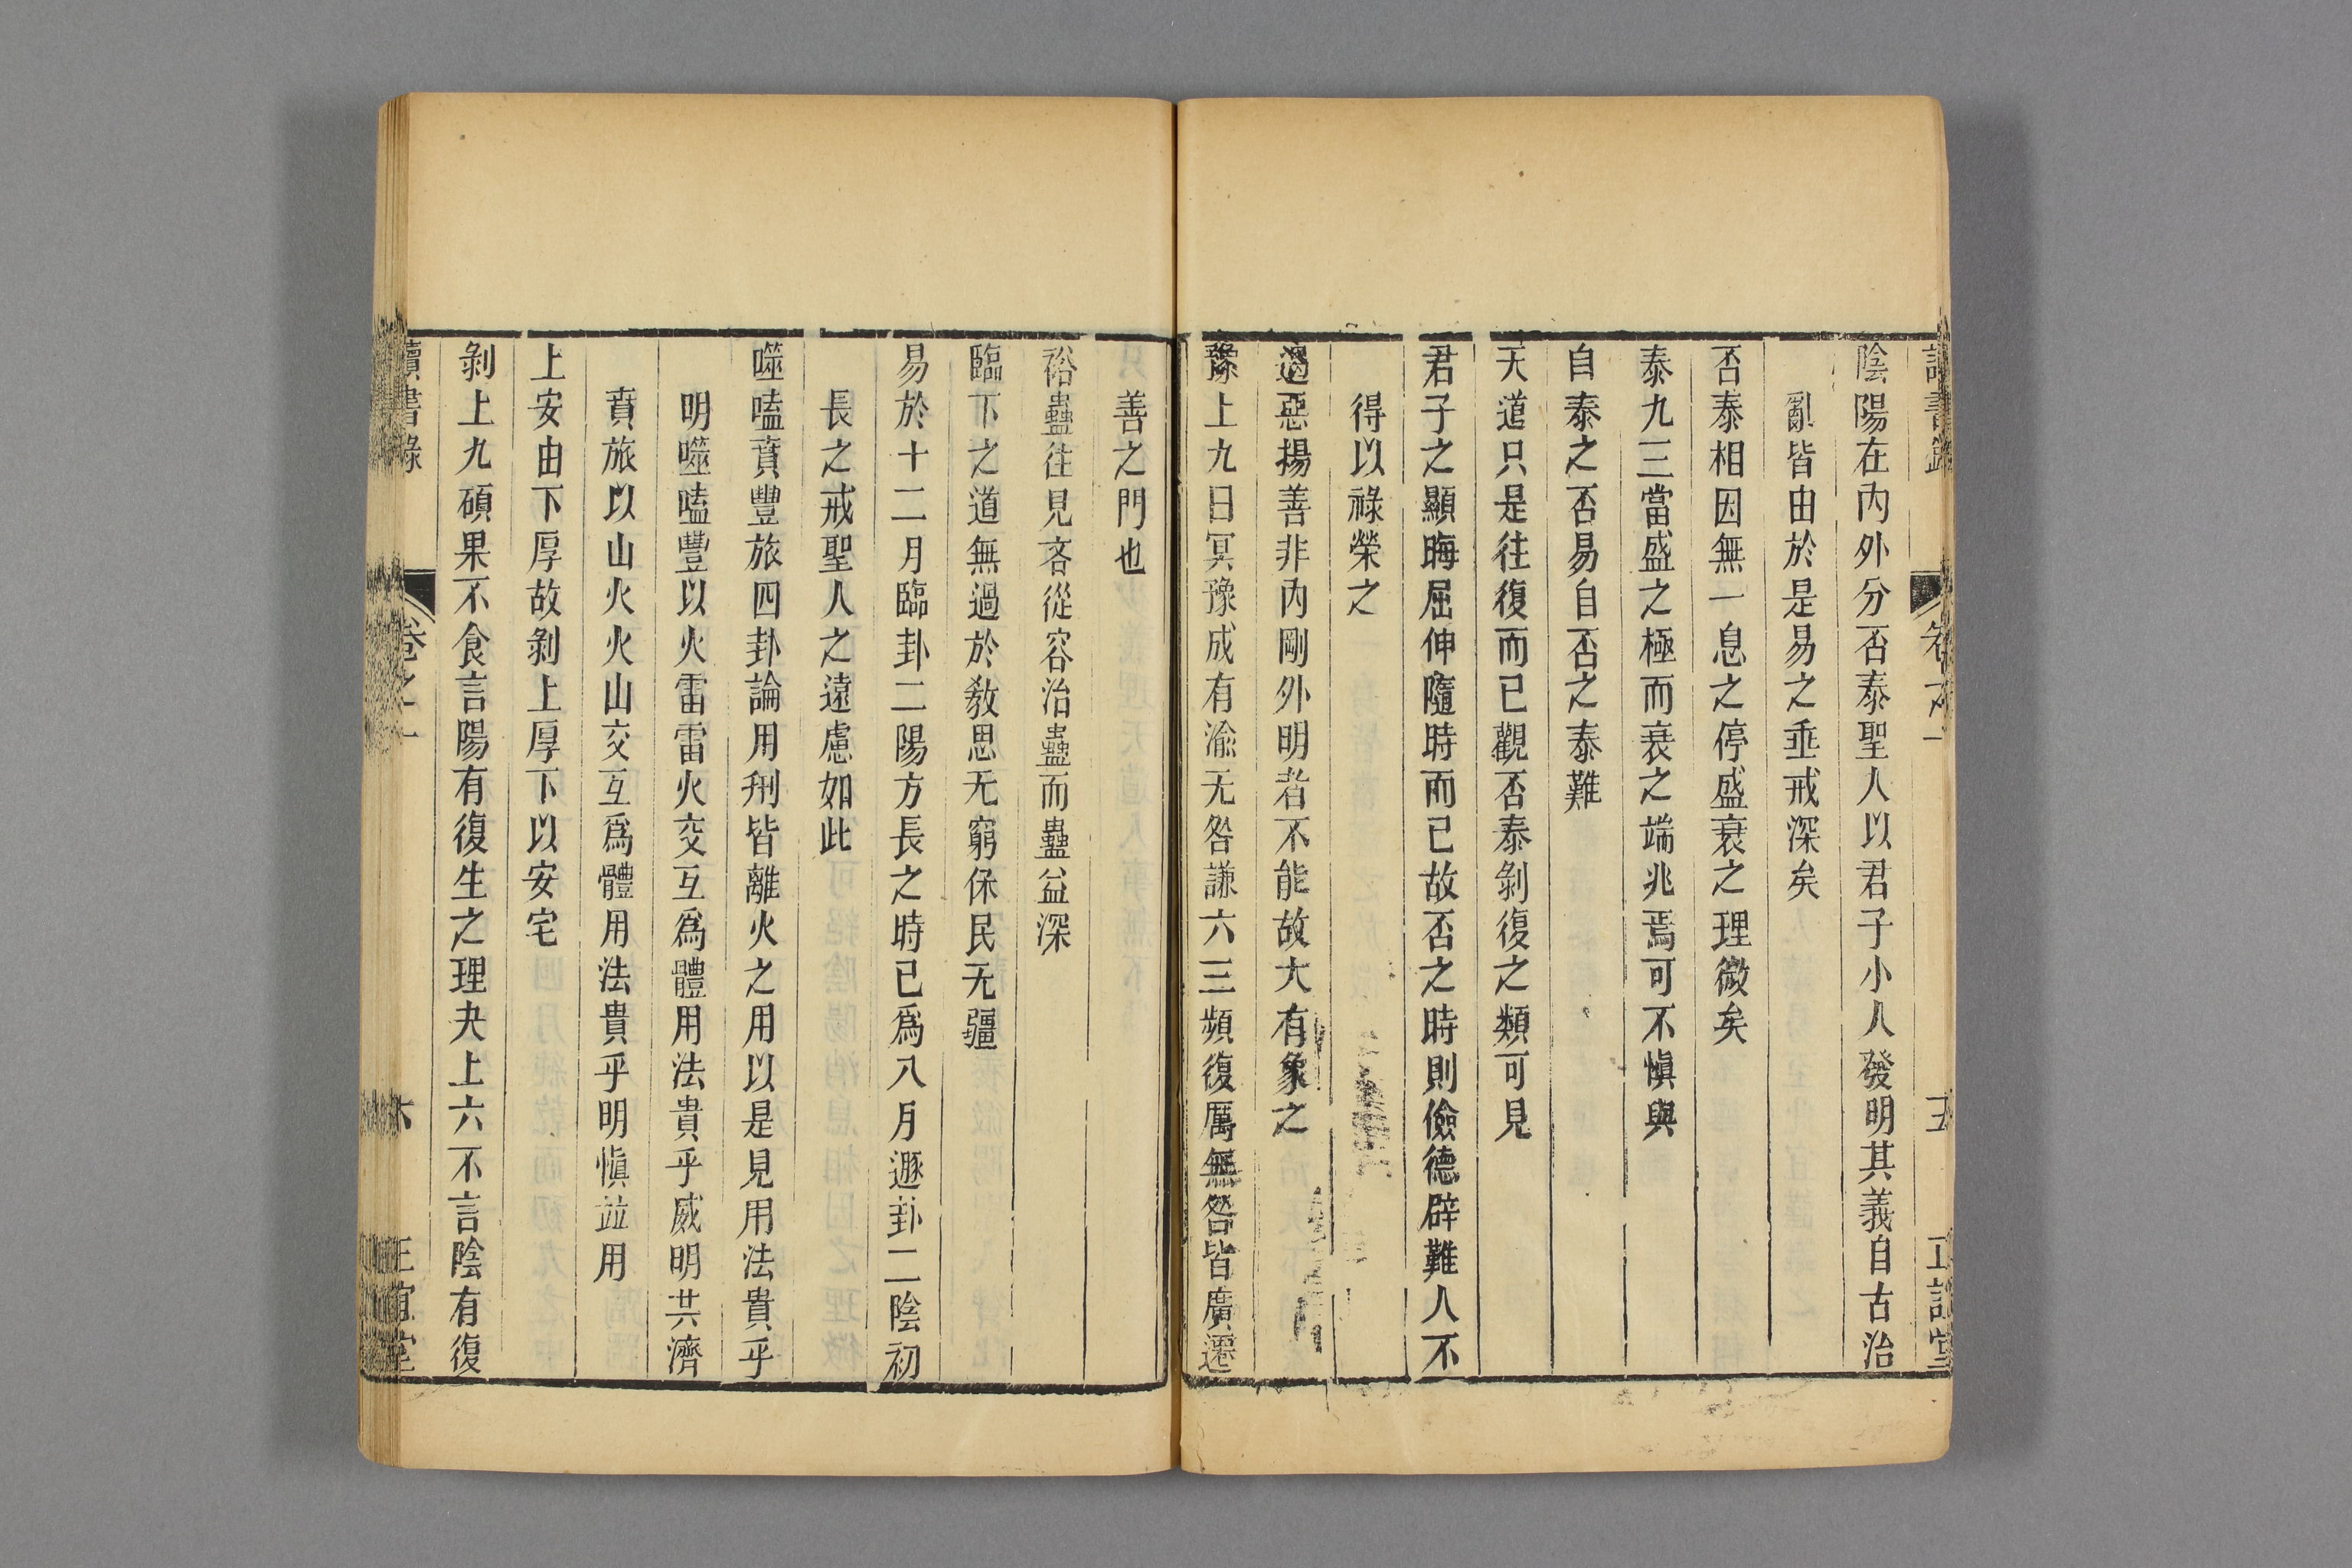 讀書錄 卷之一 五 正誼堂
陰陽在內外分否泰聖人以君子小人發明其義自古治
亂皆由於是易之垂戒深矣
否泰相因無一息之停盛衰之理微矣
泰九三當盛之極而衰之端兆焉可不愼與
自泰之否易自否之泰難
天道只是往復而已觀否泰剝復之類可見
君子之顯晦屈伸隨時而已故否之時則儉德辟難人不
得以祿榮之
遏惡揚善非內剛外明者不能故大有象之
豫上九曰冥豫成有渝无咎謙六三頻復厲無咎皆廣遷
善之門也
裕蠱往見吝從容治蠱而蠱益深
臨下之道無過於敎思无窮保民无疆
易於十二月臨卦二陽方長之時已爲八月遯卦二陰初
長之戒聖人之遠慮如此
噬嗑賁豐旅四卦論用刑皆離火之用以是見用法貴乎
明噬嗑豐以火雷雷火交互爲體用法貴乎威明共濟
賁旅以山火火山交互爲體用法貴乎明愼並用
上安由下厚故剝上厚下以安宅
剝上九碩果不食言陽有復生之理夬上六不言陰有復
讀書錄 卷之一 六 正誼堂